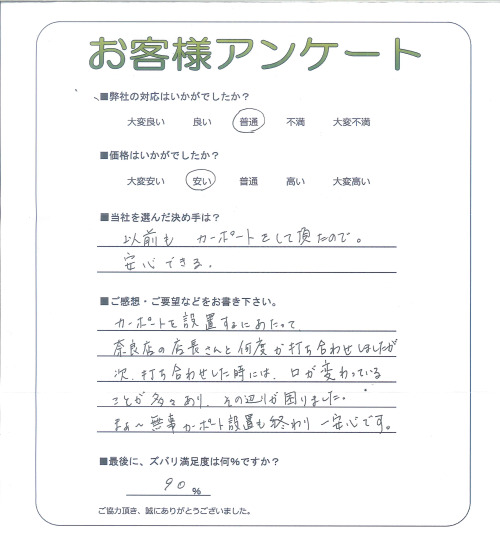 お客様アンケート
■弊社の対応はいかがでしたか？
大変良い 良い 普通 不満 大変不満
■価格はいかがでしたか？
大変安い 安い 普通 高い 大変高い
■当社を選んだ決め手は？
以前も カーポートをして頂たので。
安心できる。
■ご感想・ご要望などをお書き下さい。
カーポートを設置するにあたって
奈良店の店長さんと何度か打ち合わせしましたが
次、打ち合わせした時には、口が変わっている
ことが多々あり、その辺りが困りました。
まぁ〜無事カーポート設置も終わり一安心です。
■最後に、ズバリ満足度は何%ですか？
90%
ご協力頂き、誠にありがとうございました。